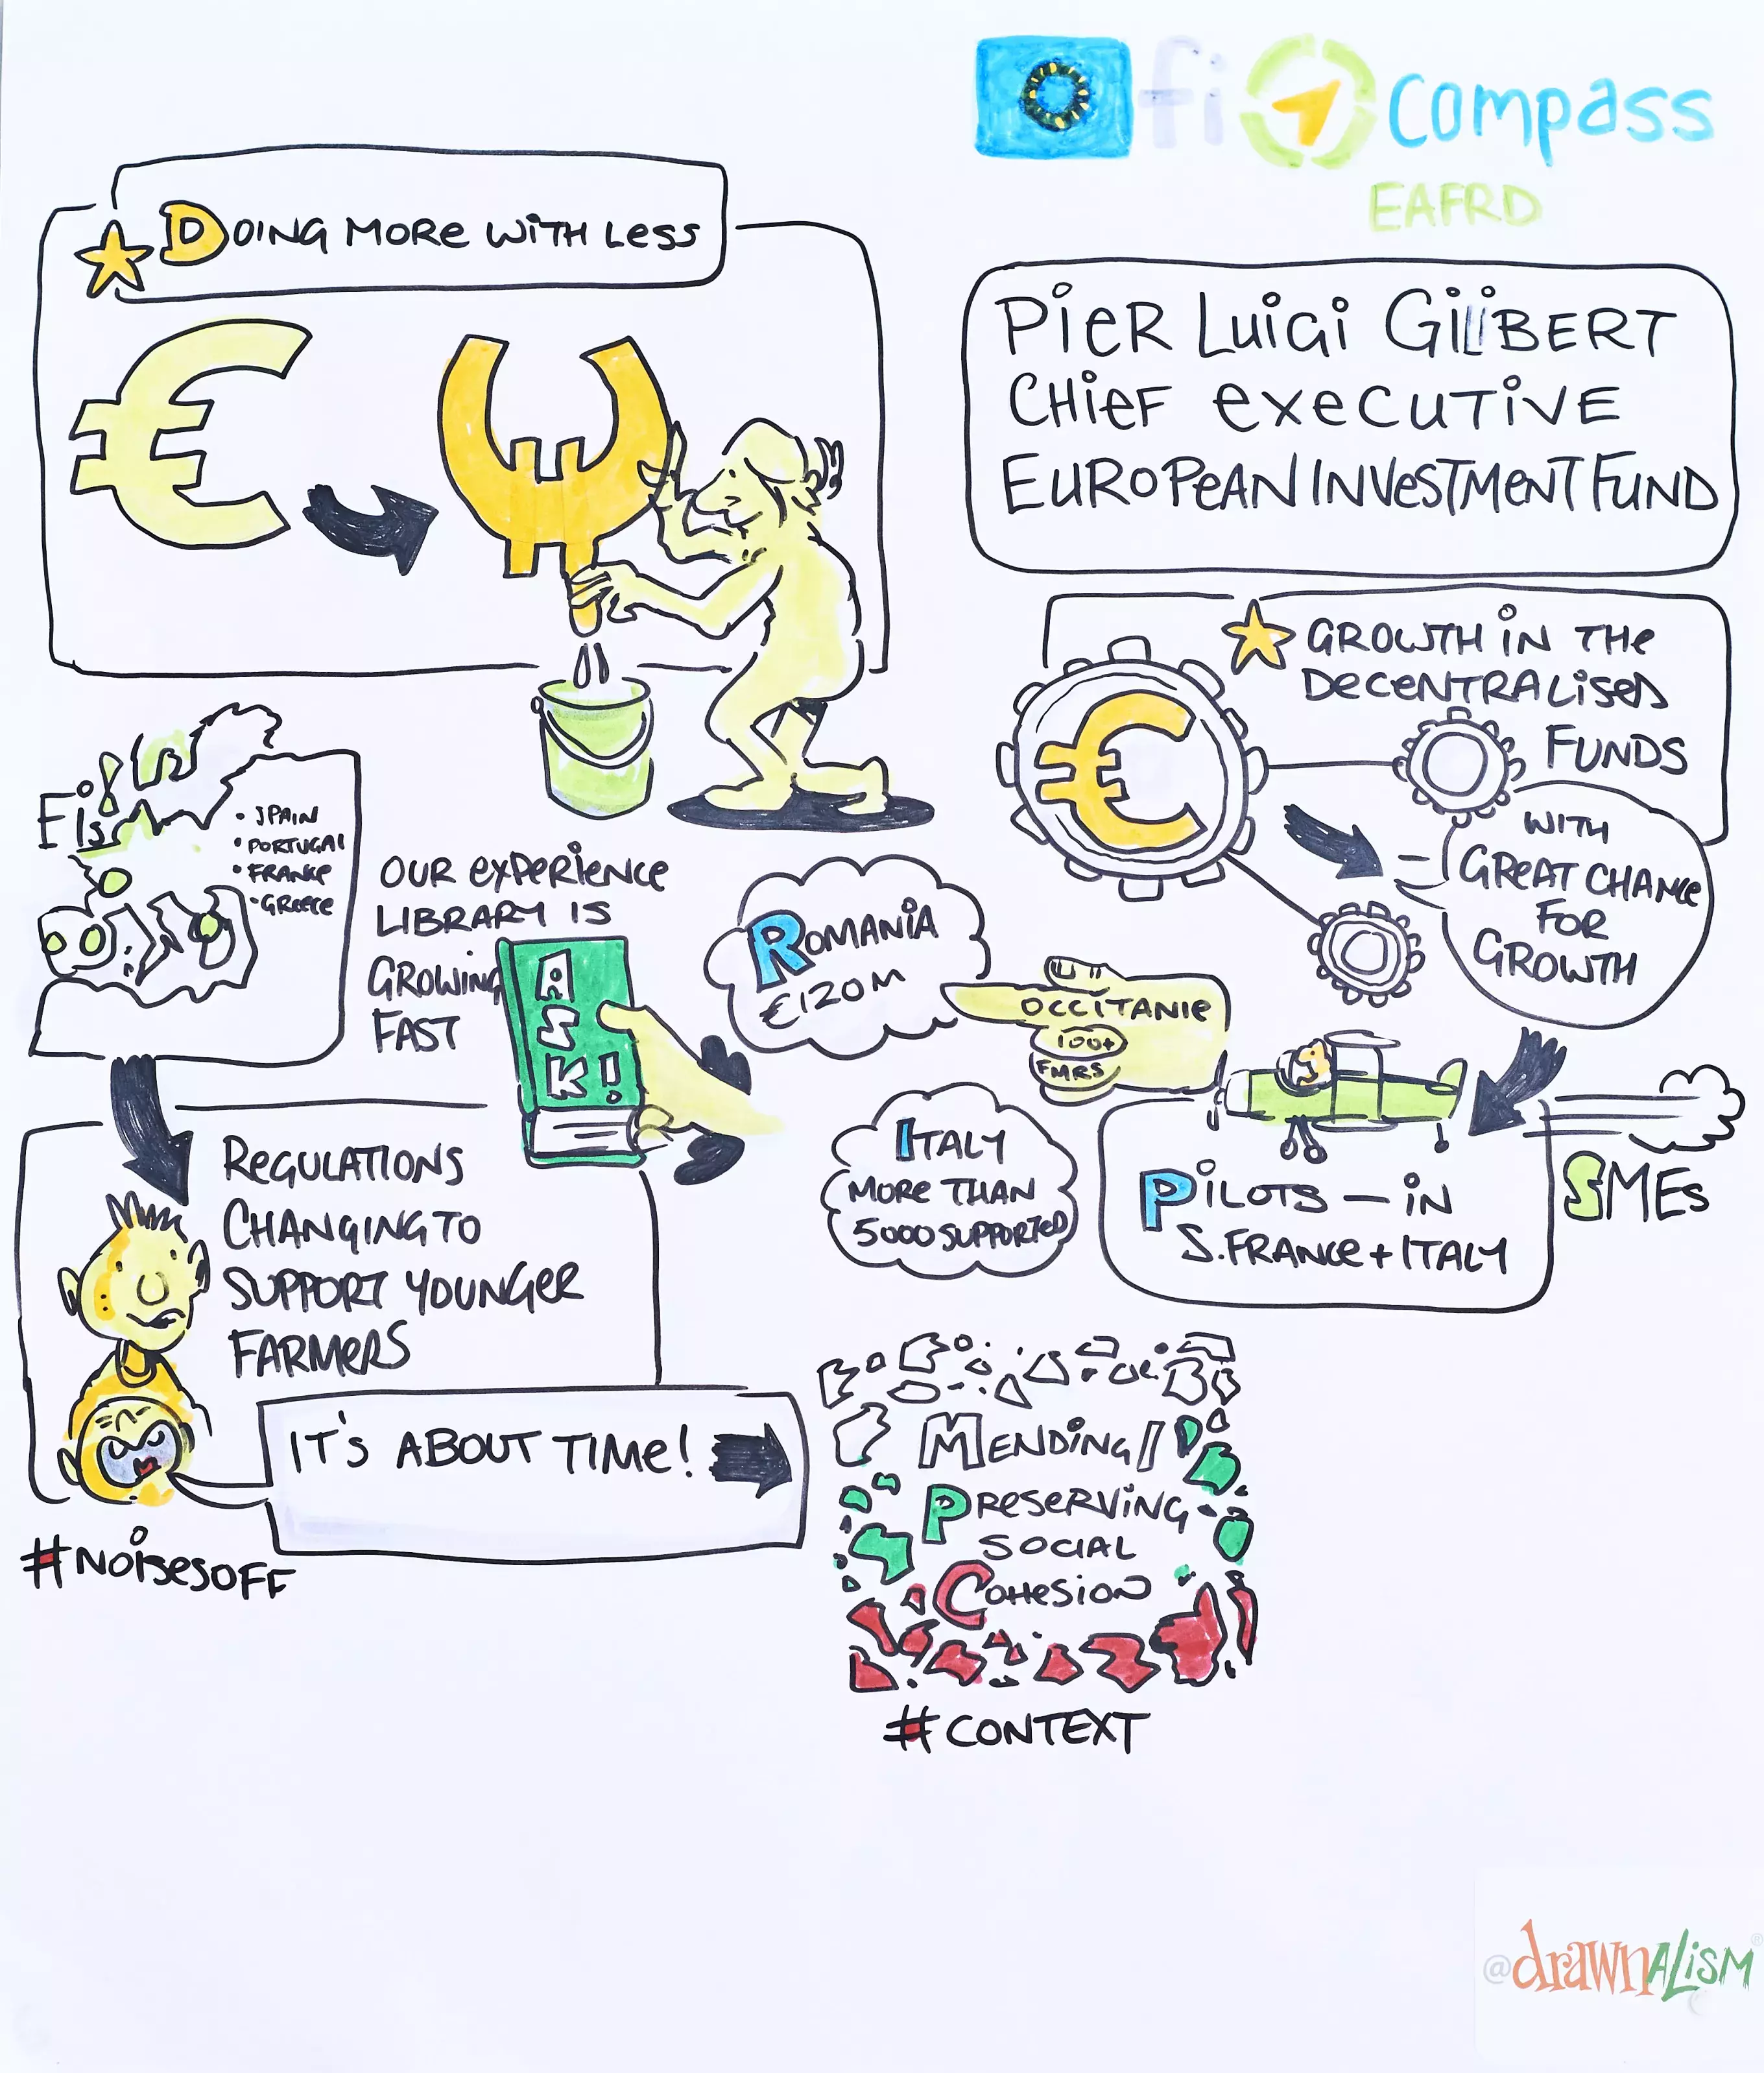 fi compass
EAFRD
DOING MORE WITH LESS
PIER LUIGI GILIBERT
CHIEF EXECUTIVE
EUROPEAN INVESTMENT FUND
GROWTH IN THE
DECENTRALISED
FUNDS
WITH
GREAT CHANCE
FOR
GROWTH
FIs
• SPAIN
• PORTUGAL
• FRANCE
• GREECE
OUR EXPERIENCE
LIBRARY IS
GROWING
FAST
ASK!
ROMANIA
€120M
OCCITANIE
100+
FMRS
ITALY
MORE THAN
5000 SUPPORTED
PILOTS — IN
S.FRANCE + ITALY
SMEs
REGULATIONS
CHANGING TO
SUPPORT YOUNGER
FARMERS
IT'S ABOUT TIME!
#NOISESOFF
MENDING/
PRESERVING
SOCIAL
COHESION
#CONTEXT
@drawnalism®